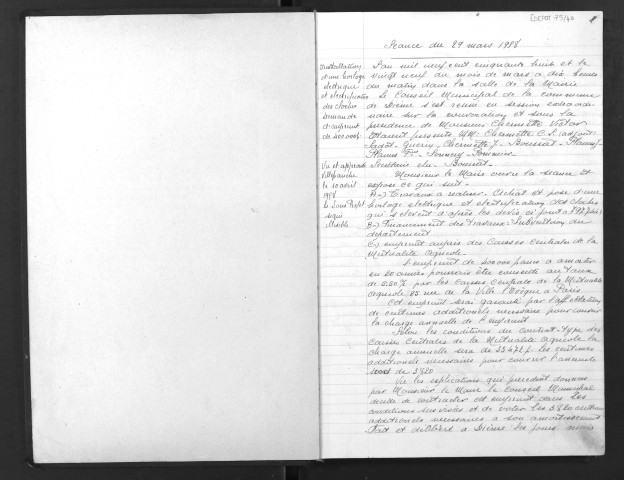 EDEPOT 75/40
1
Séance du 29 mars 1958
Installation
d'une horloge
électrique
et électrification
des cloches
demande
d'emprunt
de 500 000
Vu et approuvé
Villefranche
le 10 avril
1958
le Sous Préfet
signé
L'an mil neuf cent cinquante huit et le
vingt neuf du mois de mars à dix heures
du matin dans la salle de la Mairie
Le Conseil Municipal de la commune
de Dième s'est réuni en session extraordi
naire sur la convocation et sous la
présidence de Monsieur Chermette Victor
Etaient présents MM. Chermette C.
Jadot. Guerry, Chermette J. Boussat.
Secrétaire élu. Boussat.
Monsieur le Maire ouvre la séance et
expose ce qui suit.
A) Travaux à réaliser. Achat et pose d'une
horloge électrique et électrification des cloches
qui s'élèvent d'après les devis ci joint à
B) Financement des travaux. Subvention du
département
C) emprunt auprès des Caisses Centrales de la
Mutualité agricole.
L'emprunt de 500000 francs à amortir
en 20 années pourrait être consenti au taux
de par les Caisses Centrales de la Mutualité
agricole 25 rue de la Ville l'Evêque à Paris
Cet emprunt sera garanti par l'affectation
de centimes additionnels nécessaires pour couvrir
la charge annuelle de l'emprunt
Selon les conditions du Contrat-type des
Caisses Centrales de la Mutualité agricole la
charge annuelle sera de les centimes
additionnels nécessaires pour couvrir l'annuité
sont de 3820
Vu les explications qui précèdent données
par Monsieur le Maire le Conseil Municipal
décide de contracter cet emprunt dans les
conditions sus visées et de voter les 3820 centimes
additionnels nécessaires à son amortissement
Fait et délibéré à Dième les jours, mois